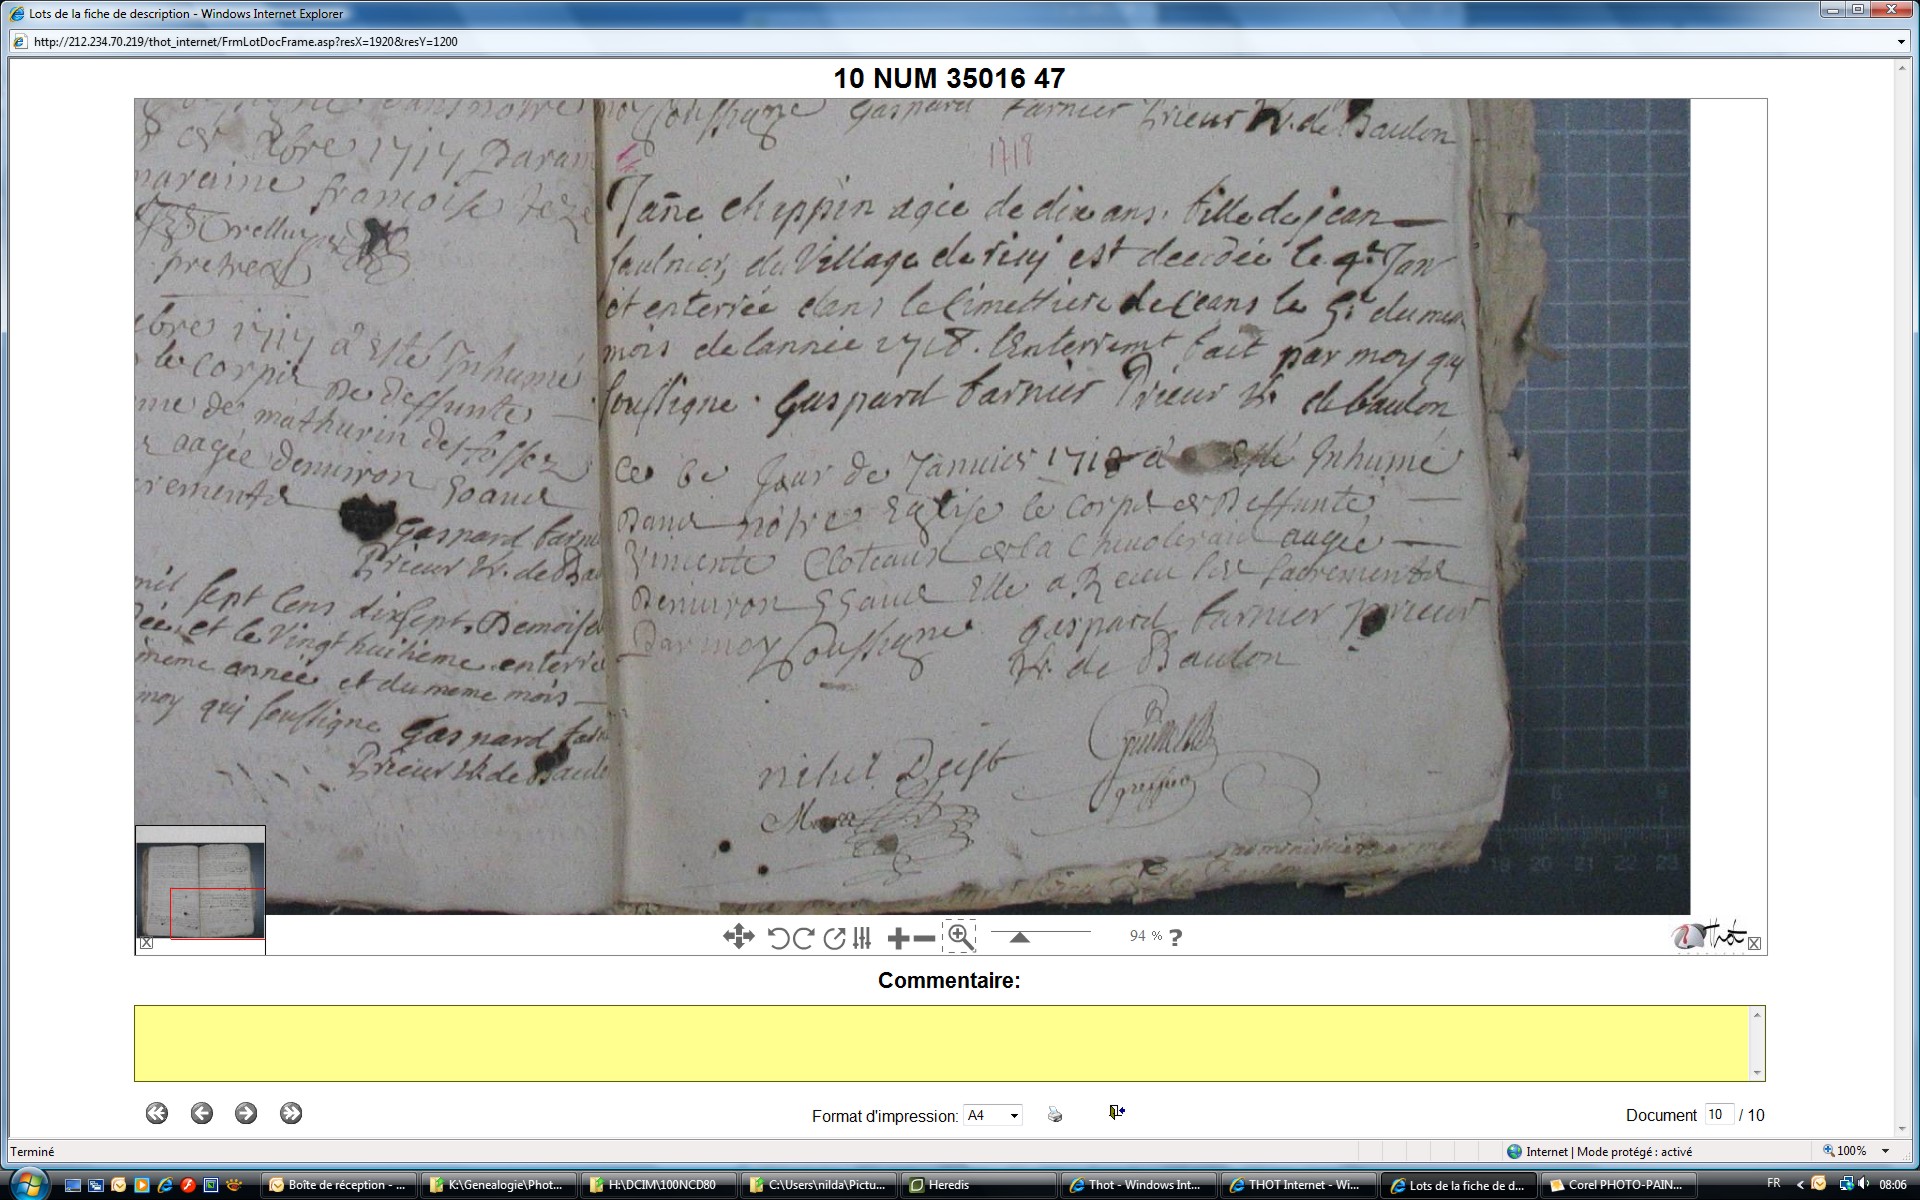 Lots de la fiche de description - Windows Internet Explorer
http://212.234.70.219/thot_internet/FrmLotDocFrame.asp?resX=1920&resY=1200
10 NUM 35016 47
dans notre
xbre 1717 Parain
maraine françoise
pretre
bre 1717 a Esté Inhumé
le corps De deffunte
de mathurin
aagée denuiron 50 ans
Gaspard barn
Prieur Vr. de Ba
mil sept Cens dix sept. Demoisel
et le Vingt huitieme enterré
même année et du meme mois
moy qui soussigne Gaspard barn
Prieur Vr. de Baul
moy soussigne Gaspard barnier Prieur Vr. de Baulon
1718
Jañe chippin agie de dix ans, fille de jean
saulnier, du Village de est decedée le 4e Jan
et enterrée dans le Cimettiere de Ceans le 5e du me
mois de lannée 1718. lEnterremt fait par moy qui
soussigne. Gaspard barnier Prieur Vr. de baulon
Ce 6e Jour de Januier 1718 a Esté Inhumé
Dans notre Eglise le corps de Deffunte
Vincente Cloteaux de la aagée
Denuiron 55 ans Elle a Receu les sacrements
Par moy soussigne Gaspard barnier prieur
Vr. de Baulon
nihil Deest
greffier
19 20 21 22 23
94 % ?
Thot
Commentaire:
Format d'impression: A4
Document 10 / 10
Terminé
Internet | Mode protégé : activé
100%
Boîte de réception - ...
K:\Genealogie\Phot...
H:\DCIM\100NCD80
C:\Users\nilda\Pictu...
Heredis
Thot - Windows Int...
THOT Internet - Wi...
Lots de la fiche de d...
Corel PHOTO-PAIN...
FR
08:06